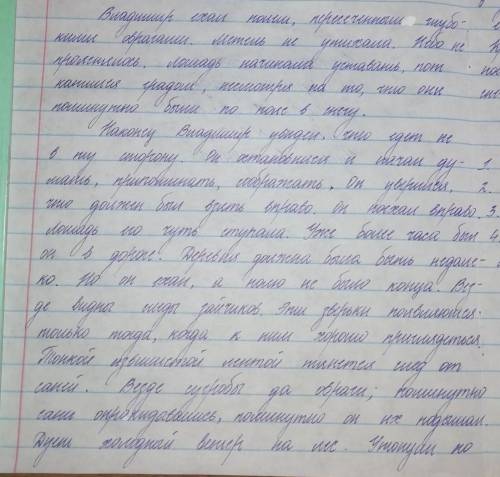 Владимир ехал полем, пересеченным глубо-
кими оврагами. Метель не утихала. Небо не
прояснялось. Лошадь начинала уставать, пот
катился градом, несмотря на то, что они
поминутно были по пояс в снегу.
Наконец Владимир увидел, что едет не
в ту сторону. Он остановился и начал ду-
мать, припоминать, соображать. Он уверился, 2.
что должен был взять вправо. Он поехал вправо. 3.
Лошадь его чуть ступала. Уже более часа был 4.
он в дороге. Деревня должна была быть недале-
ко. Но он ехал, а полю не было конца. Вез-
де видны следы зайчиков. Эти зверьки появляются
только тогда, когда к ним хорошо приглядеться.
Тонкой извилистой лентой тянется след от
саней. Везде сугробы да овраги; поминутно
сани опрокидовались, поминутно он их подымал.
Дует холодный ветер на лес. Утопили по